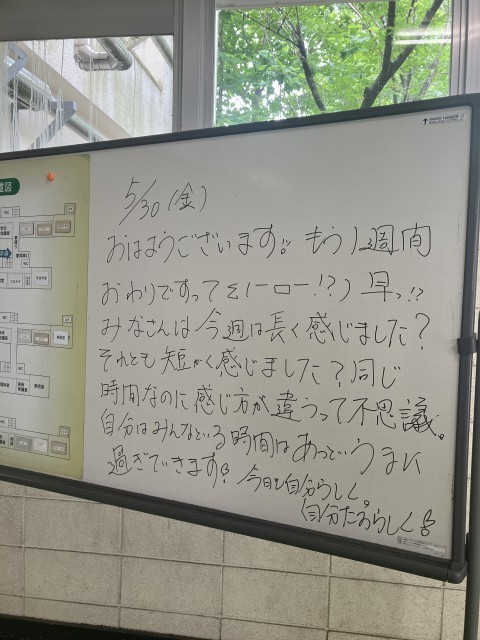 5/30(金)
おはようございます!! もう1週間
おわりですってΣ(ーロー!?) 早っ!?
みなさんは今週は長く感じました?
それとも短かく感じました?同じ
時間なのに感じ方が違うって不思議。
自分はみんなといる時間はあっというまに
過ぎていきます! 今日も自分らしく。
自分たちらしく!
置図